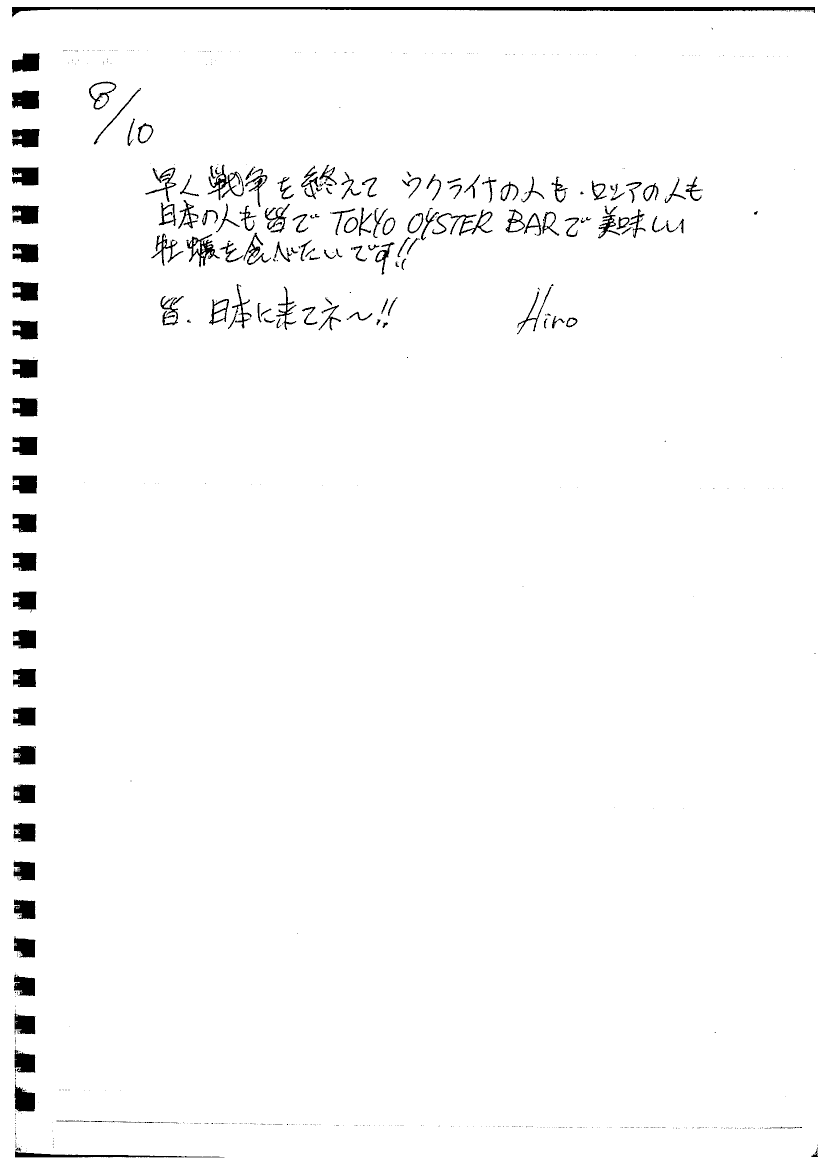 8/10
早く戦争を終えて ウクライナの人も・ロシアの人も
日本の人も皆で TOKYO OYSTER BARで美味しい
牡蠣を食べたいです!!
皆、日本に来てネ〜!!
Hiro